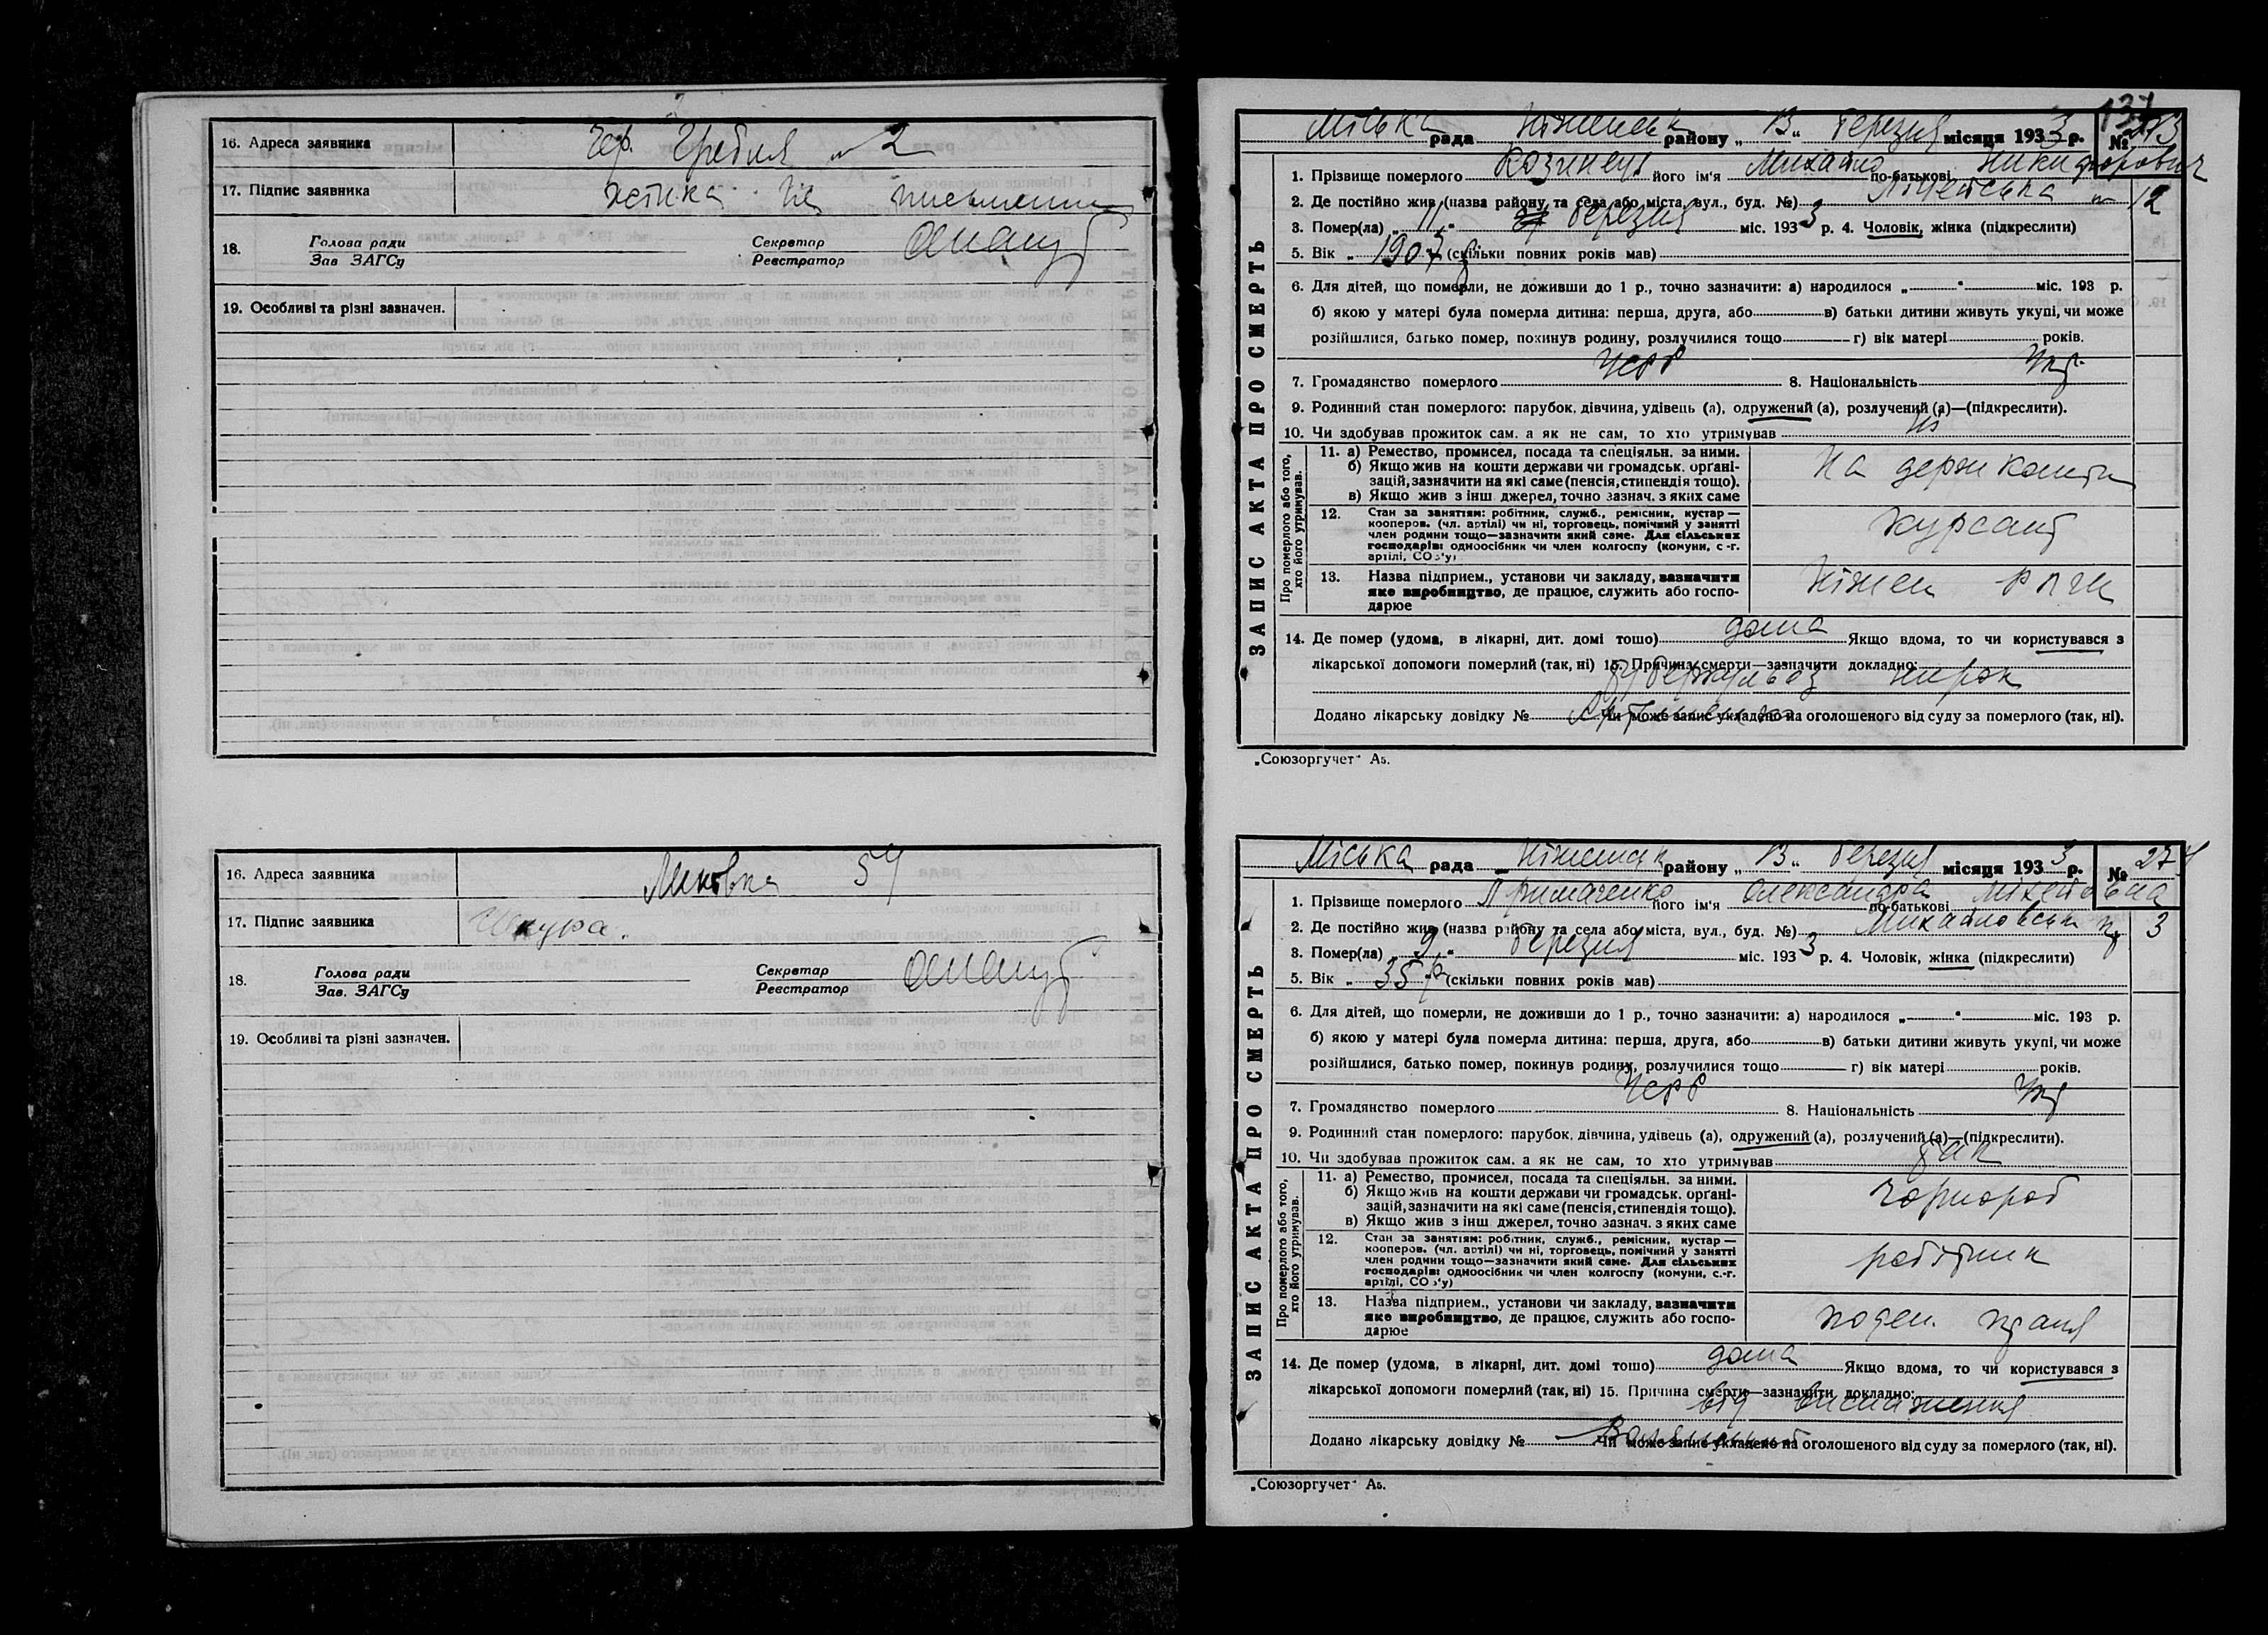 16. Адреса заявника Чер. Гребля № 2
17. Підпис заявника жінка не письменна
18. Голова ради Секретар
Зав ЗАГСу Реєстратор
19. Особливі та різні зазначен.
16. Адреса заявника 54
17. Підпис заявника Шкура.
18. Голова ради Секретар
Зав. ЗАГСу Реєстратор
19. Особливі та різні зазначен.
137
Міська рада Ніженськ району „13" березня місяця 1933 р. № 273
ЗАПИС АКТА ПРО СМЕРТЬ
1. Прізвище померлого Козинець його ім'я Михайло по-батькові Никифорович
2. Де постійно жив (назва району та села або міста, вул., буд. №) Ліцейська № 12
3. Помер(ла) „11" березня міс. 1933 р. 4. Чоловік, жінка (підкреслити)
5. Вік „1907 р (скільки повних років мав)
6. Для дітей, що померли, не доживши до 1 р., точно зазначити: а) народилося „ " міс. 193 р.
б) якою у матері була померла дитина: перша, друга, або в) батьки дитини живуть укупі, чи може
розійшлися, батько помер, покинув родину, розлучилися тощо г) вік матері років.
7. Громадянство померлого УСРР 8. Національність Укр.
9. Родинний стан померлого: парубок, дівчина, удівець (а), одружений (а), розлучений (а)—(підкреслити).
10. Чи здобував прожиток сам, а як не сам, то хто утримував Ні
Про померлого або того, хто його утримував.
11. а) Ремество, промисел, посада та спеціяльн. за ними.
б) Якщо жив на кошти держави чи громадськ. органі-
зацій, зазначити на які саме (пенсія, стипендія тощо).
в) Якщо жив з інш. джерел, точно зазнач. з яких саме
На держ кошти
12. Стан за занятіям: робітник, служб., ремісник, кустар —
кооперов. (чл. артілі) чи ні, торговець, помічний у занятті
член родини тощо—зазначити який саме. Для сільських
господарів: одноосібник чи член колгоспу (комуни, с.-г.
артілі, СОЗ'у)
курсант
13. Назва підприєм., установи чи закладу, зазначити
яке виробництво, де працює, служить або госпо-
дарює
Ніжен
14. Де помер (удома, в лікарні, дит. домі тощо) дома Якщо вдома, то чи користувався з
лікарської допомоги померлий (так, ні) 15. Причина смерти—зазначити докладно:
туберкульоз нирок
Додано лікарську довідку № Чи може запис укладено на оголошеного від суду за померлого (так, ні).
„Союзоргучет" А5.
Міська рада району „13" березня місяця 1933 р. № 274
ЗАПИС АКТА ПРО СМЕРТЬ
1. Прізвище померлого Примаченко його ім'я Олександра по-батькові
2. Де постійно жив (назва району та села або міста, вул., буд. №) 3
3. Помер(ла) „9" березня міс. 1933 р. 4. Чоловік, жінка (підкреслити)
5. Вік „35 р (скільки повних років мав)
6. Для дітей, що померли, не доживши до 1 р., точно зазначити: а) народилося „ " міс. 193 р.
б) якою у матері була померла дитина: перша, друга, або в) батьки дитини живуть укупі, чи може
розійшлися, батько помер, покинув родину, розлучилися тощо г) вік матері років.
7. Громадянство померлого УСРР 8. Національність Укр
9. Родинний стан померлого: парубок, дівчина, удівець (а), одружений (а), розлучений (а)—(підкреслити).
10. Чи здобував прожиток сам, а як не сам, то хто утримував так
Про померлого або того, хто його утримував.
11. а) Ремество, промисел, посада та спеціяльн. за ними.
б) Якщо жив на кошти держави чи громадськ. органі-
зацій, зазначити на які саме (пенсія, стипендія тощо).
в) Якщо жив з інш. джерел, точно зазнач. з яких саме
чорнороб
12. Стан за занятіям: робітник, служб., ремісник, кустар —
кооперов. (чл. артілі) чи ні, торговець, помічний у занятті
член родини тощо—зазначити який саме. Для сільських
господарів: одноосібник чи член колгоспу (комуни, с.-г.
артілі, СОЗ'у)
робітник
13. Назва підприєм., установи чи закладу, зазначити
яке виробництво, де працює, служить або госпо-
дарює
поден. праця
14. Де помер (удома, в лікарні, дит. домі тощо) дома Якщо вдома, то чи користувався з
лікарської допомоги померлий (так, ні) 15. Причина смерти—зазначити докладно:
від виснаження
Додано лікарську довідку № Чи може запис укладено на оголошеного від суду за померлого (так, ні).
„Союзоргучет" А5.